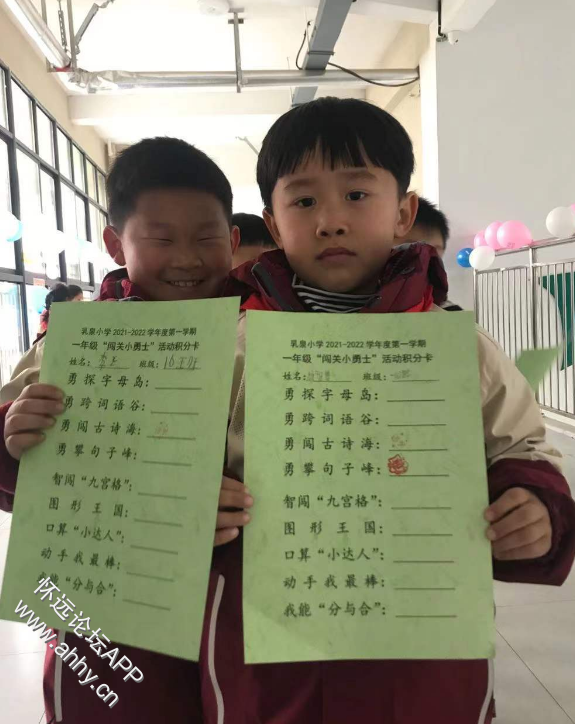 乳泉小学2021-2022学年度第一学期
一年级“闯关小勇士”活动积分卡
姓名: 班级:
勇探字母岛:
勇跨词语谷:
勇闯古诗海:
勇攀句子峰:
智闯“九宫格”:
图形王国:
口算“小达人”:
动手我最棒:
“分与合”:
乳泉小学2021-2022学年度第一学期
一年级“闯关小勇士”活动积分卡
姓名: 班级:
勇探字母岛:
勇跨词语谷:
勇闯古诗海:
勇攀句子峰:
智闯“九宫格”:
图形王国:
口算“小达人”:
动手我最棒:
我能“分与合”:
怀远论坛APP
www.ahhy.cn